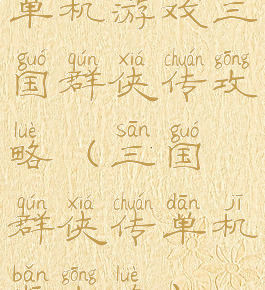 单机游戏三
guó qún xiá chuán gōng
国群侠传攻
lüè sān guó
略(三国
qún xiá chuán dān jī
群侠传单机
bǎn gōng lüè